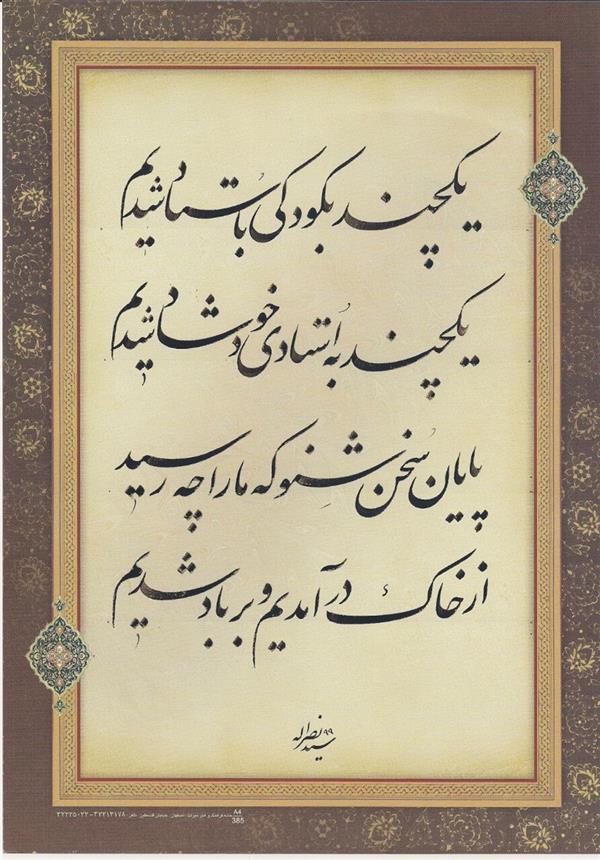 یکچند بکودکی باستاد شدیم
یکچند به اُستادی خود شاد شدیم
پایان سخن شنو که ما را چه رسید
از خاک در آمدیم و بر باد شدیم
سید نصراله ۹۹
A4
385